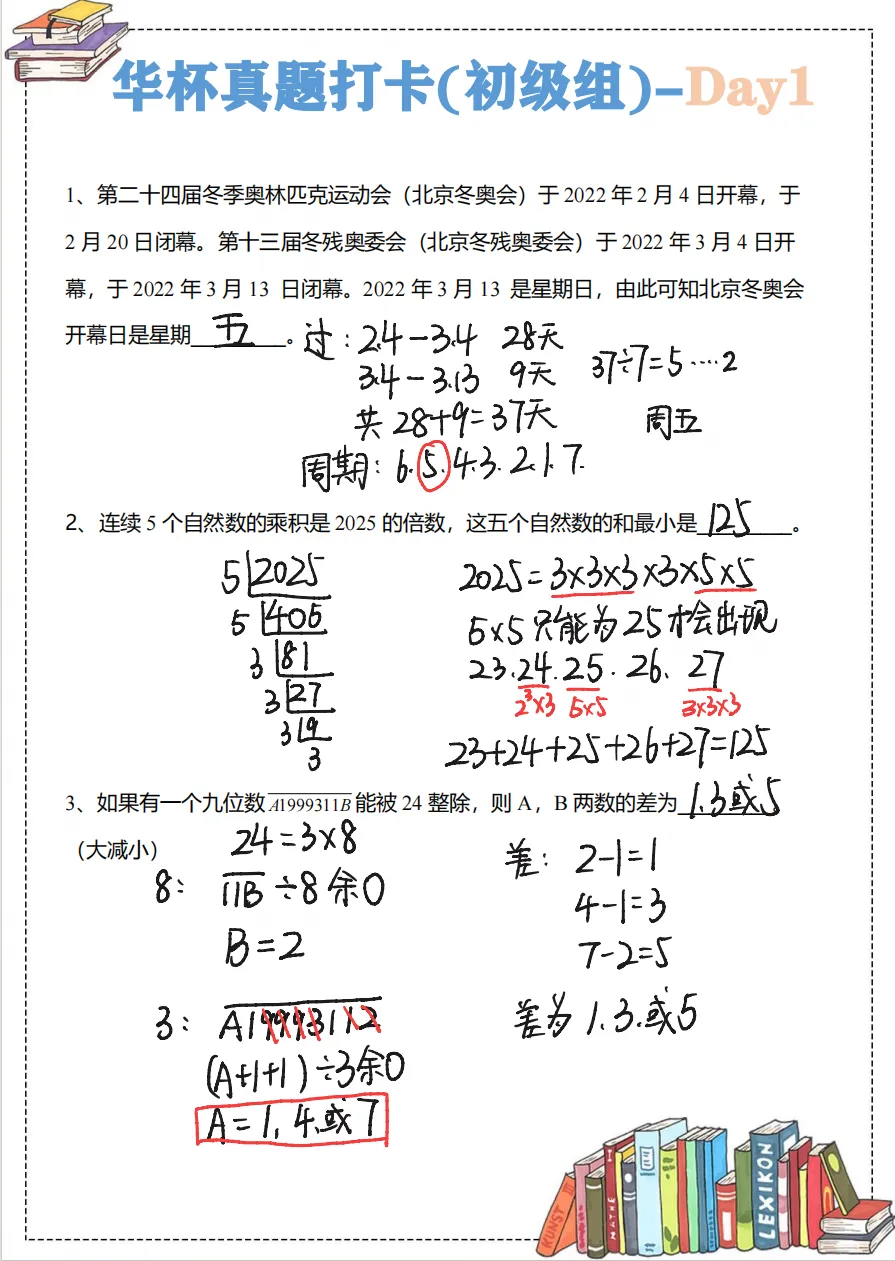 华杯真题打卡(初级组)-Day1
1、第二十四届冬季奥林匹克运动会（北京冬奥会）于 2022 年 2 月 4 日开幕，于
2 月 20 日闭幕。第十三届冬残奥委会（北京冬残奥委会）于 2022 年 3 月 4 日开
幕，于 2022 年 3 月 13 日闭幕。2022 年 3 月 13 是星期日，由此可知北京冬奥会
开幕日是星期 五 。
过：2.4－3.4 28天
3.4－3.13 9天
37÷7=5……2
共 28+9=37天
周五
周期：6.5.4.3.2.1.7.
2、连续 5 个自然数的乘积是 2025 的倍数，这五个自然数的和最小是 125 。
5 2025
5 405
3 81
3 27
3 9
3
2025=3×3×3×3×5×5
5×5只能为25才会出现
23.24.25.26.27
2³×3 5×5 3×3×3
23+24+25+26+27=125
3、如果有一个九位数A1999311B能被 24 整除，则 A，B 两数的差为 1.3或5
（大减小）
24=3×8
8： 11B÷8余0
B=2
3： A19993112
(A+1+1)÷3余0
A=1.4.或7
差： 2-1=1
4-1=3
7-2=5
差为 1.3.或5
KUNST
MATHE
LEXIKON